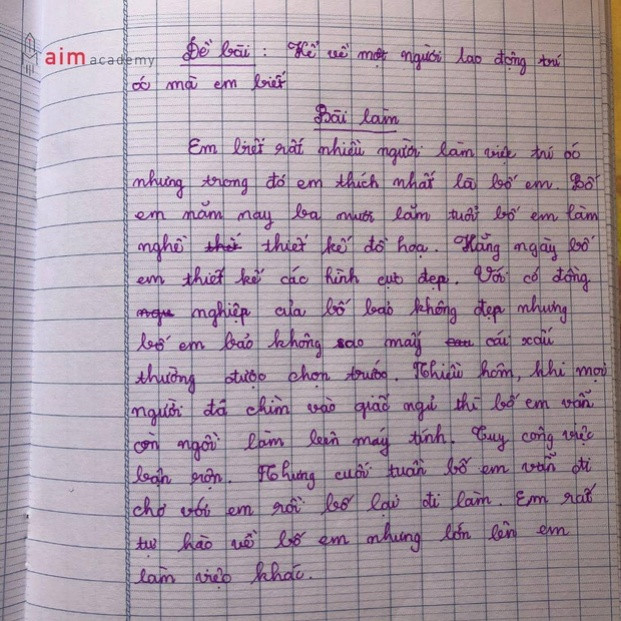 aim academy
Đề bài : Kể về một người lao động trí
óc mà em biết
Bài làm
Em biết rất nhiều người làm việc trí óc
nhưng trong đó em thích nhất là bố em. Bố
em năm nay ba mươi lăm tuổi bố em làm
nghề thiết kế đồ họa. Hằng ngày bố
em thiết kế các hình cực đẹp. Với có đồng
nghiệp của bố bảo không đẹp nhưng
bố em bảo không sao mấy cái xấu
thường được chọn trước. Nhiều hôm, khi mọi
người đã chìm vào giấc ngủ thì bố em vẫn
còn ngồi làm bên máy tính. Tuy công việc
bận rộn. Nhưng cuối tuần bố em vẫn đi
chơ với em rồi bố lại đi làm. Em rất
tự hào về bố em nhưng lớn lên em
làm việc khác.